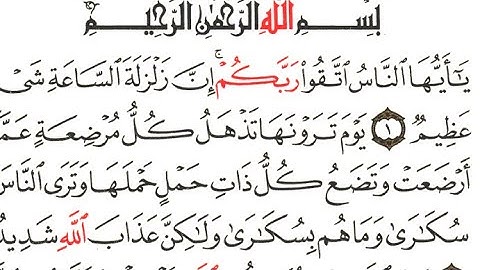 بِسْمِ اللَّهِ الرَّحْمَٰنِ الرَّحِيمِ
يَـٰٓأَيُّهَا النَّاسُ اتَّقُوا۟ رَبَّكُمْ ۚ إِنَّ زَلْزَلَةَ السَّاعَةِ شَىْ
عَظِيمٌ ١ يَوْمَ تَرَوْنَهَا تَذْهَلُ كُلُّ مُرْضِعَةٍ عَمَّ
أَرْضَعَتْ وَتَضَعُ كُلُّ ذَاتِ حَمْلٍ حَمْلَهَا وَتَرَى النَّاسَ
سُكَـٰرَىٰ وَمَا هُم بِسُكَـٰرَىٰ وَلَـٰكِنَّ عَذَابَ اللَّهِ شَدِيدٌ